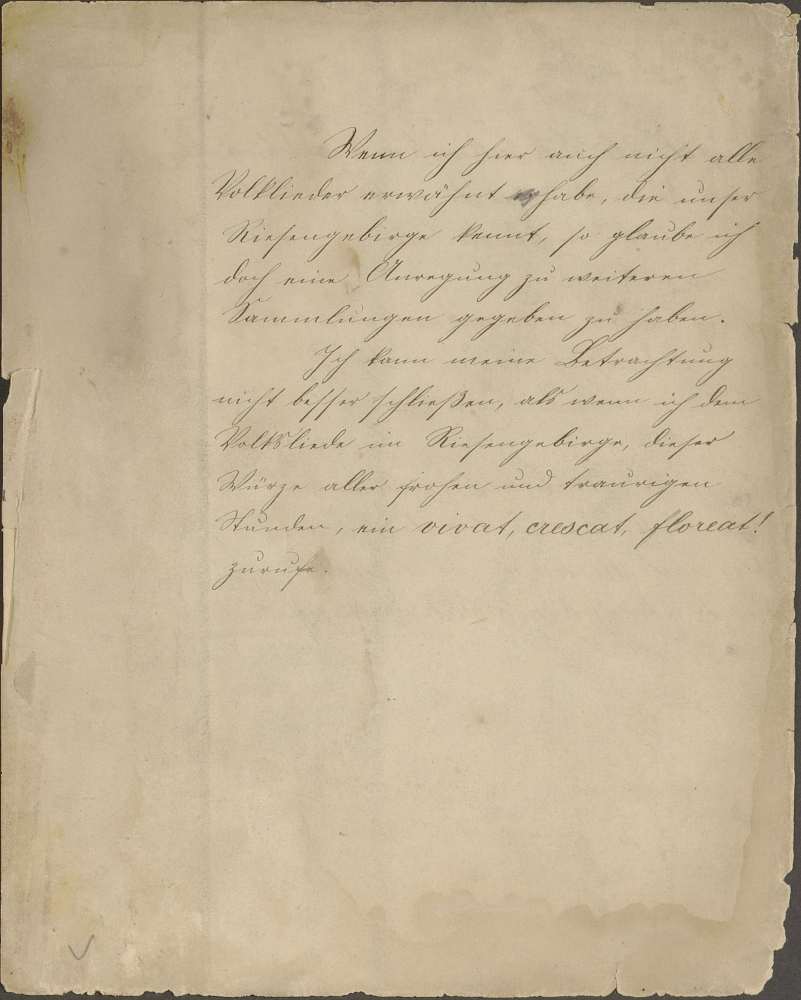 Wenn ich hier auch nicht alle
Volklieder erwähnt habe, die unser
Riesengebirge kennt, so glaube ich
doch eine Anregung zu weiteren
Sammlungen gegeben zu haben.
Ich kann meine Betrachtung
nicht besser schließen, als wenn ich dem
Volksliede im Riesengebirge, dieser
Würze aller frohen und traurigen
Stunden, ein vivat, crescat, floreat!
zurufe.